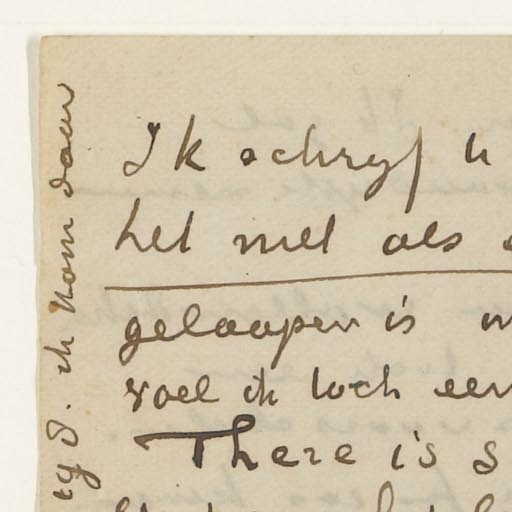 Ik schryf u
het met als
geloopen is
voel ik toch een
There is s
tyd. ik kom daar